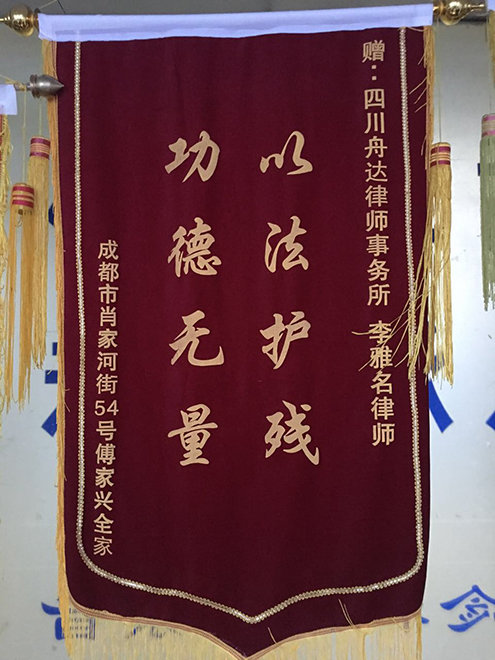 赠：四川舟达律师事务所 李雅名律师
以法护残
功德无量
成都市肖家河街54号傅家兴全家